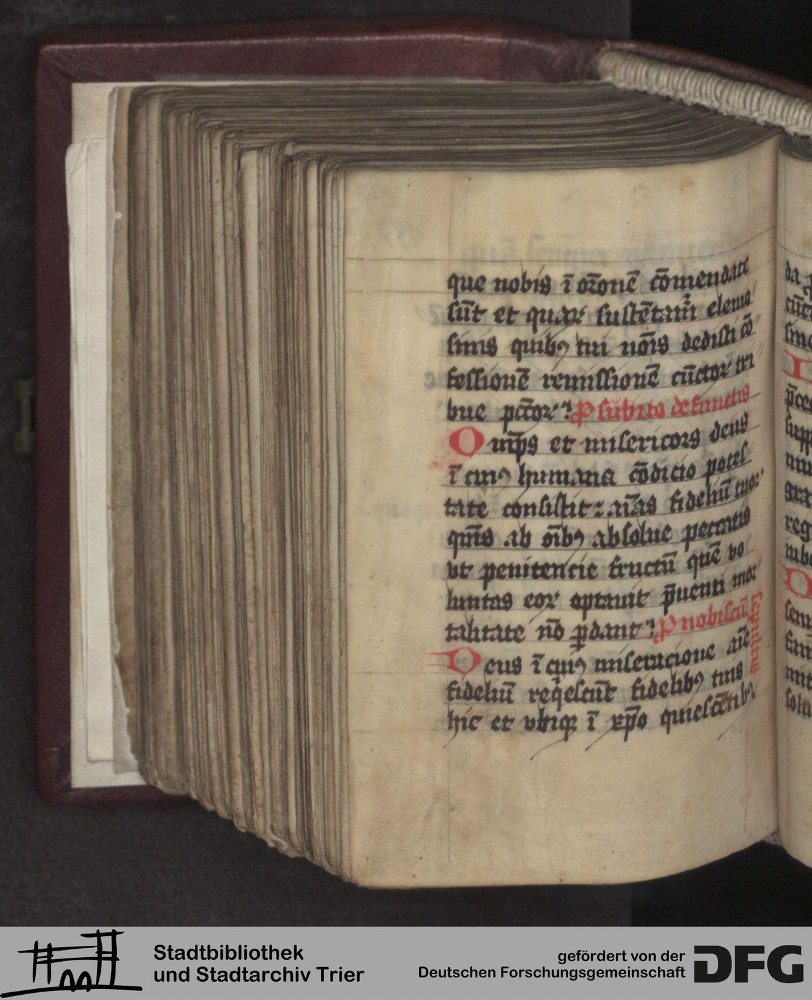 que nobis ī or̄onē cōmendate
sūt et quaꝝ sustētam̄ elemo
sinis quibꝰ tui nōīs dedisti cō
fessionē remissionē cūctoꝝ tri
bue pctōꝝ ꝑ subito defunctis
Omp̄s et misericors deus
ī cuiꝰ humana cōdicio potes
tate consistit: aīas fidelium tuoꝝ
qm̄s ab oībꝫ absolue peccatis
vt penitencie fructū quē vo
luntas eoꝝ optauit p̄uenti mor
talitate nō ꝑdant ꝑ nobiscū
sepultis
Deus ī cuiꝰ miseracione aīe
fideliū reqͥescūt fidelibꝫ tuis
hic et vbiqꝫ ī xp̄o quiescētibꝫ
Stadtbibliothek
und Stadtarchiv Trier
gefördert von der
Deutschen Forschungsgemeinschaft
DFG